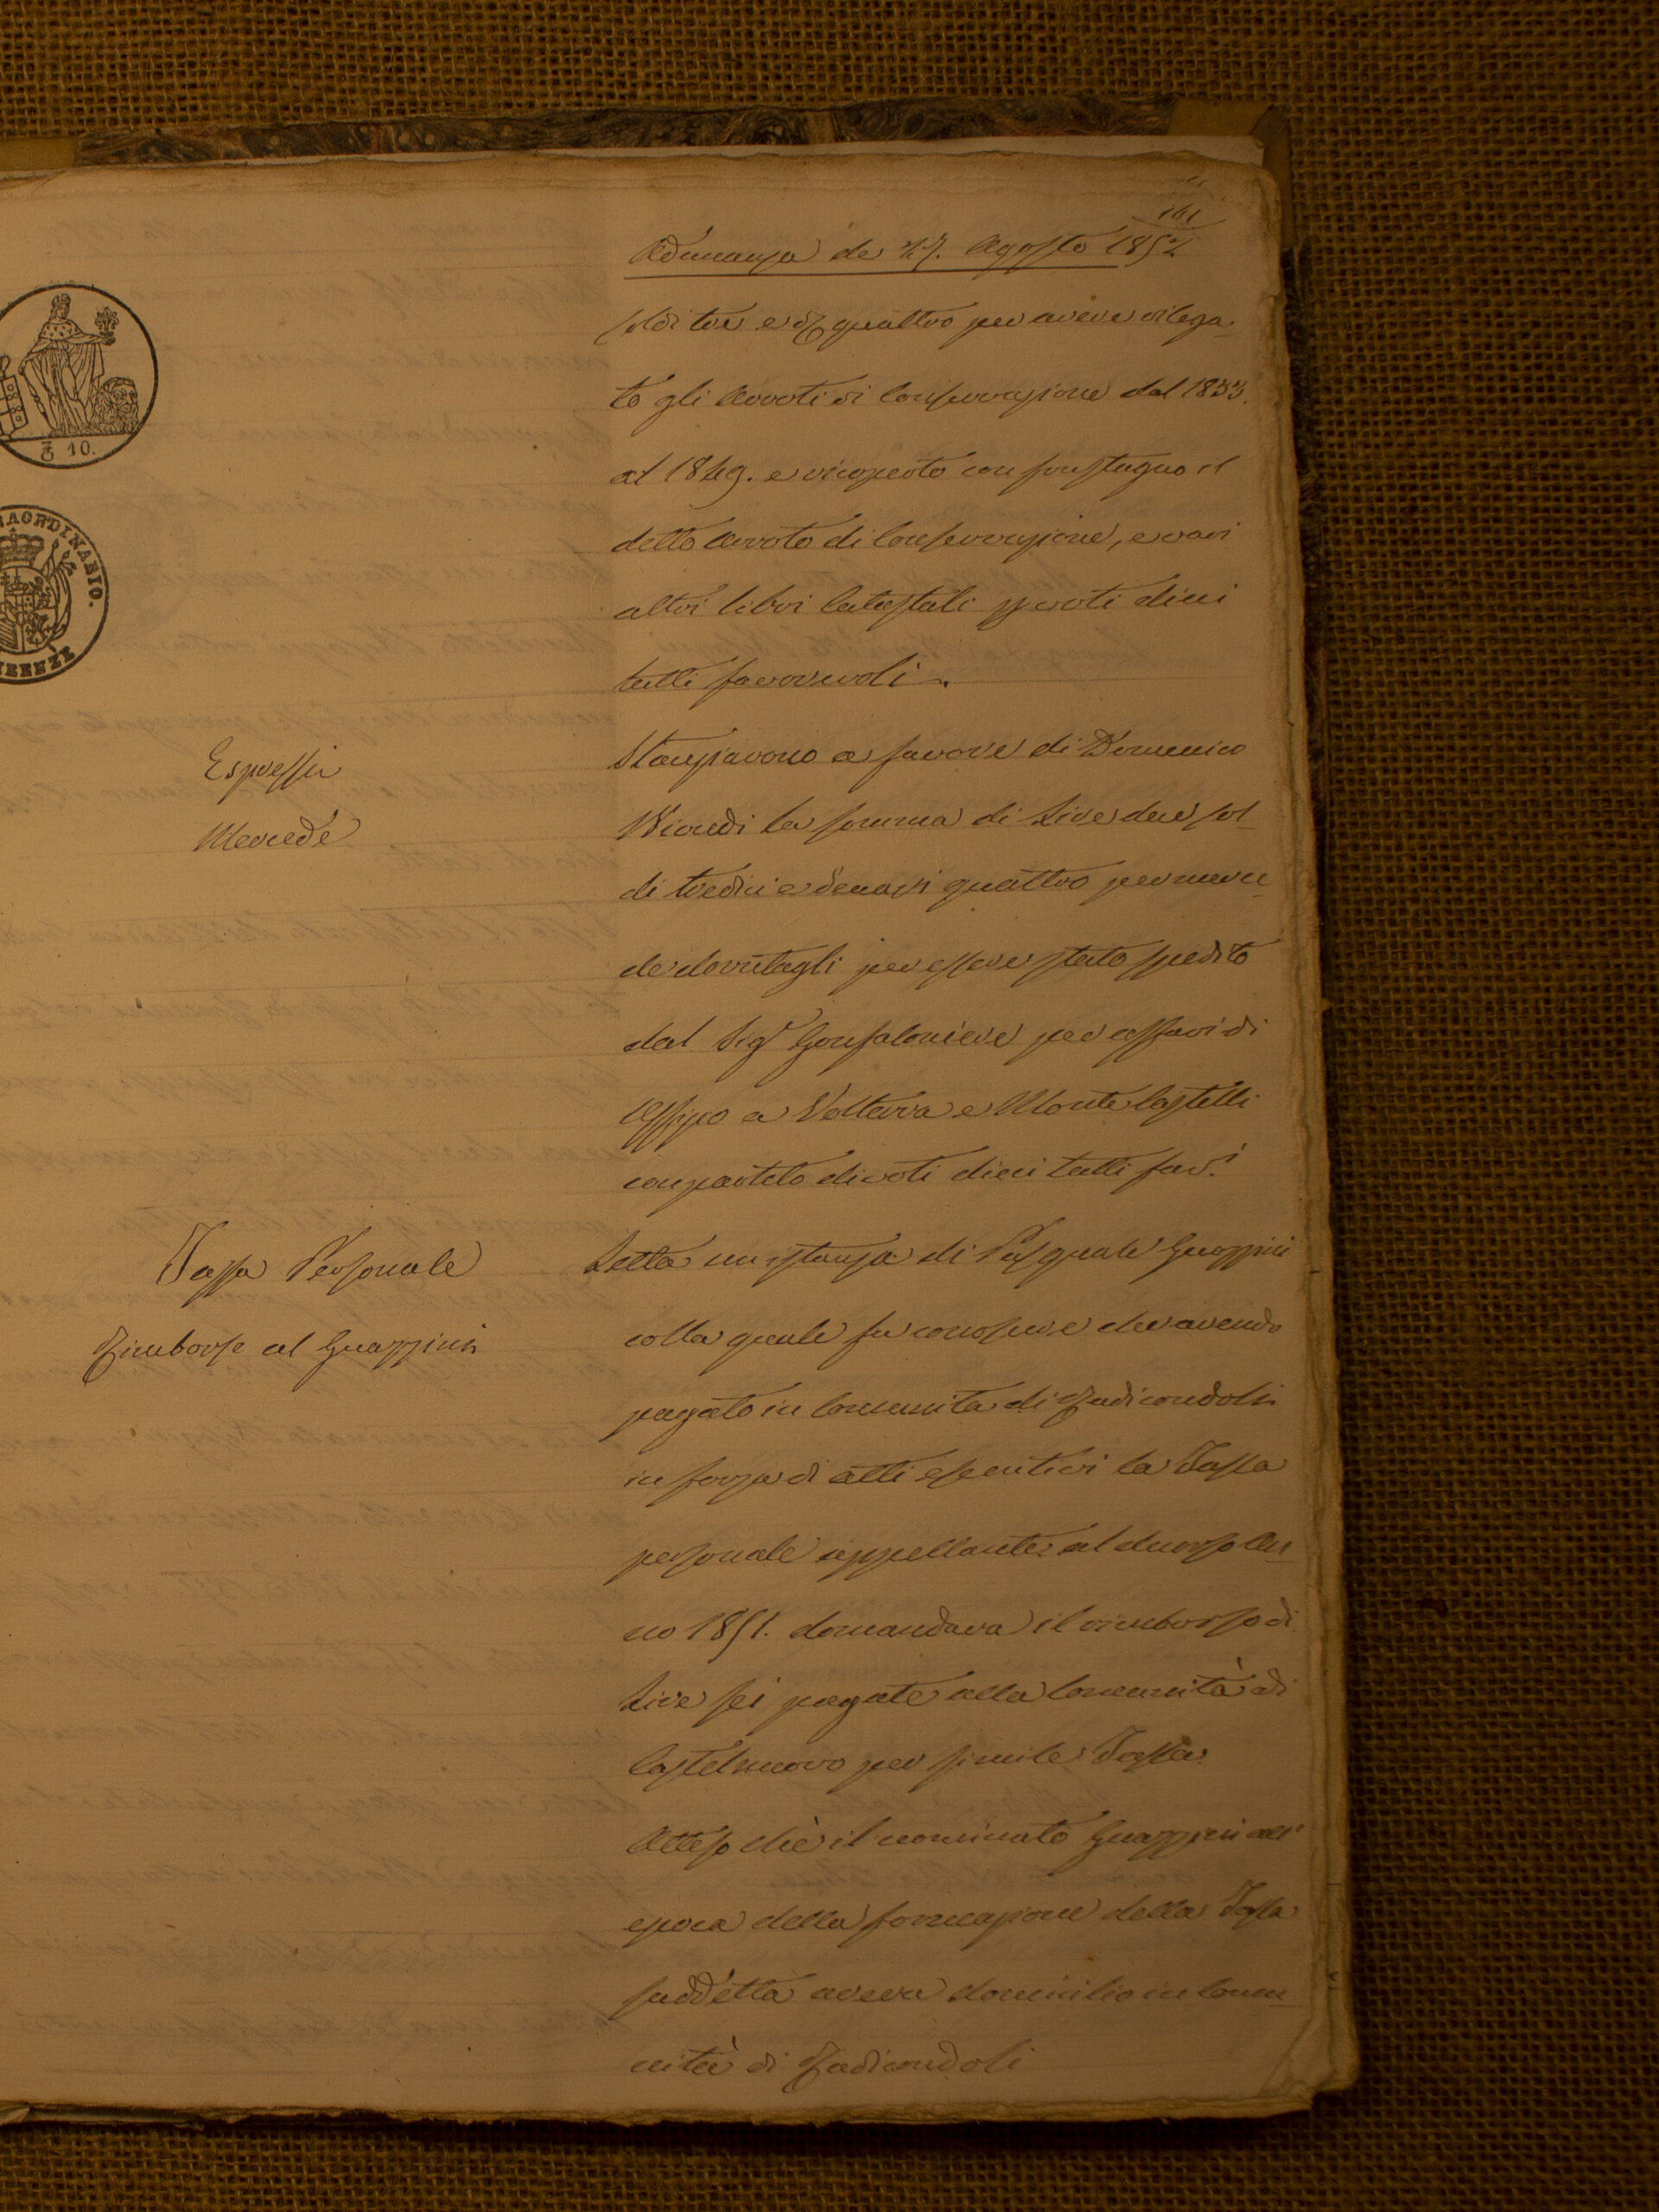 161
Adunanza de 27. Agosto 1852
soldi tre e d quattro per avere rilega-
to gli Arroti di Conservazione dal 1833.
al 1849. e ricoperto con frustagno il
detto Arroto di Conservazione, e vari
altri libri Catastali p voti dieci
tutti favorevoli.
Espressi
Mercede
Stanziarono a favore di Domenico
Biondi la somma di Lire due sol-
di tredici e denari quattro per merce-
de dovutagli per essere stato spedito
dal Sig.r Gonfaloniere per affari di
Uffizio a Volterra e Monte Castelli
con partito di voti dieci tutti fav.i
Tassa Personale
Rimborso al Guazzini
Letta un istanza di Pasquale Guazzini
colla quale fa conoscere che avendo
pagato in Comunita di Radicondoli
in forza di atti esecutivi la Tassa
personale appellante al decorso An-
no 1851. domandava il rimborso di
Lire sei pagate alla Comunità di
Castelnuovo per simile Tassa.
Atteso chè il nominato Guazzini all'
epoca della formazione della Tassa
suddetta aveva domicilio in Comu-
nità di Radicondoli
10.
RAORDINARIO.
FIRENZE